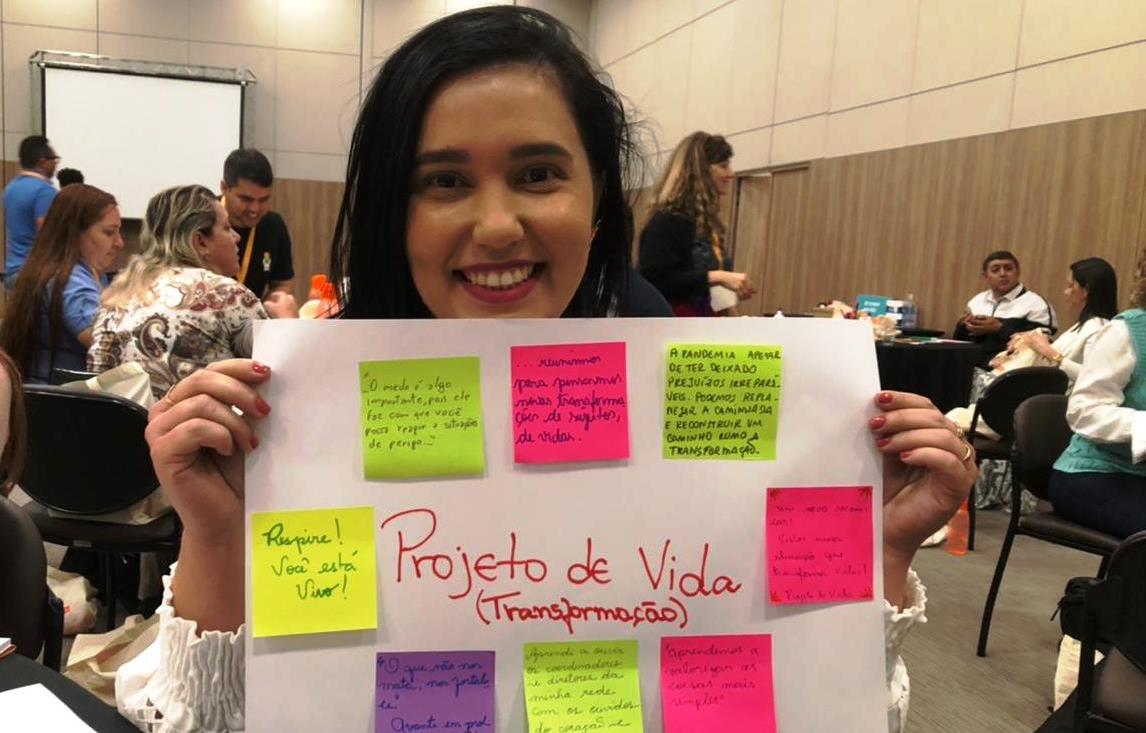 "O medo é algo
importante, pois ele
faz com que você
possa reagir a situações
de perigo..."
... reunimos
para pensarmos
novas transforma
ções de sujeitos,
de vidas.
A PANDEMIA APESAR
DE TER DEIXADO
PREJUÍZOS IRREPARÁ
VEIS. PODEMOS REPLA
NEJAR A CAMINHADA
E RECONSTRUIR UM
CAMINHO RUMO A
TRANSFORMAÇÃO.
Respire!
Você está
Vivo!
Projeto de Vida
(Transformação)
educação que
transforma vidas!
Projeto de Vida
"O que não nos
mata, nos fortale
ce"
Avante em prol
Aprendi a ouvir
os coordenadores
e diretores da
minha rede
com os ouvidos
do coração e
"Aprendemos a
valorizar as
coisas mais
simples"